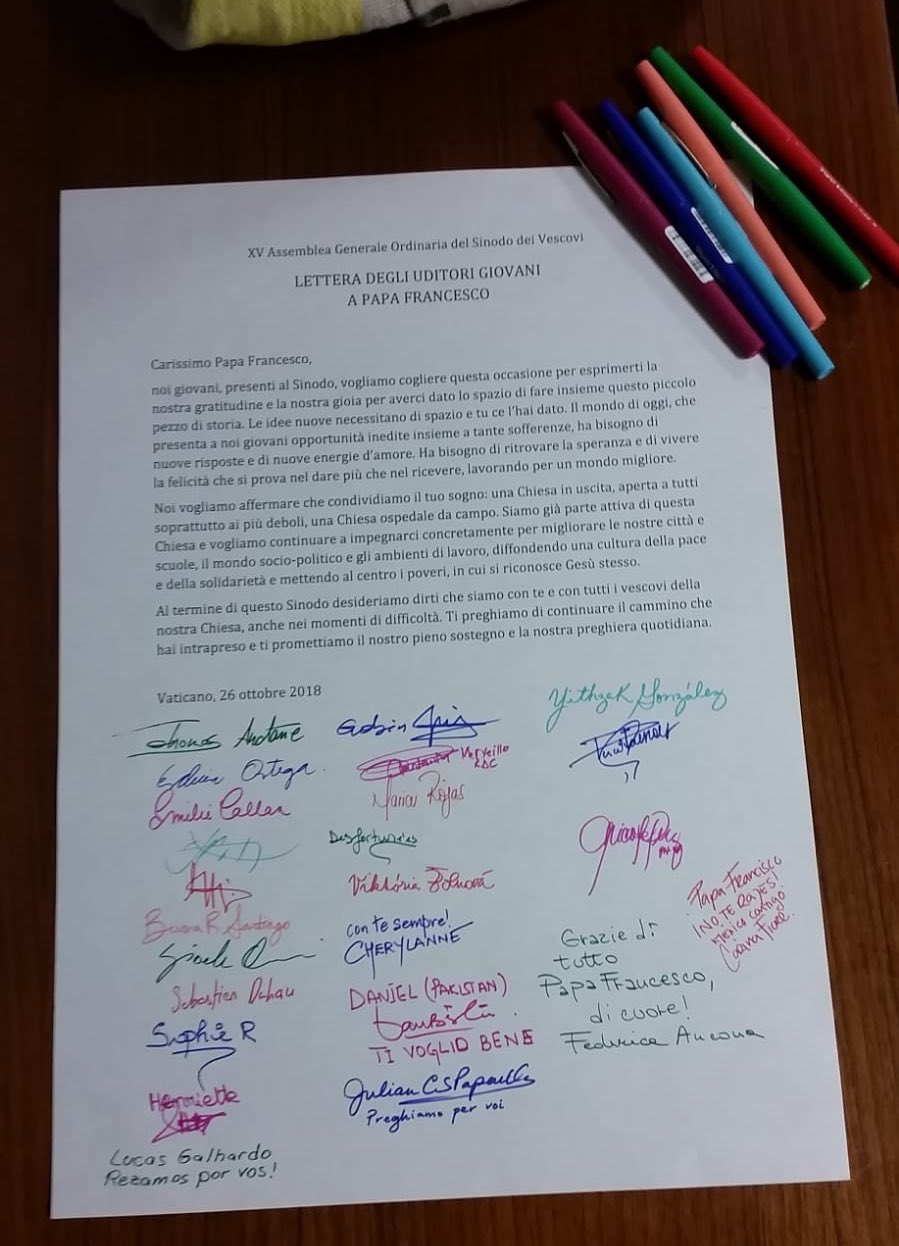 XV Assemblea Generale Ordinaria del Sinodo dei Vescovi
LETTERA DEGLI UDITORI GIOVANI
A PAPA FRANCESCO
Carissimo Papa Francesco,
noi giovani, presenti al Sinodo, vogliamo cogliere questa occasione per esprimerti la
nostra gratitudine e la nostra gioia per averci dato lo spazio di fare insieme questo piccolo
pezzo di storia. Le idee nuove necessitano di spazio e tu ce l'hai dato. Il mondo di oggi, che
presenta a noi giovani opportunità inedite insieme a tante sofferenze, ha bisogno di
nuove risposte e di nuove energie d'amore. Ha bisogno di ritrovare la speranza e di vivere
la felicità che si prova nel dare più che nel ricevere, lavorando per un mondo migliore.
Noi vogliamo affermare che condividiamo il tuo sogno: una Chiesa in uscita, aperta a tutti
soprattutto ai più deboli, una Chiesa ospedale da campo. Siamo già parte attiva di questa
Chiesa e vogliamo continuare a impegnarci concretamente per migliorare le nostre città e
scuole, il mondo socio-politico e gli ambienti di lavoro, diffondendo una cultura della pace
e della solidarietà e mettendo al centro i poveri, in cui si riconosce Gesù stesso.
Al termine di questo Sinodo desideriamo dirti che siamo con te e con tutti i vescovi della
nostra Chiesa, anche nei momenti di difficoltà. Ti preghiamo di continuare il cammino che
hai intrapreso e ti promettiamo il nostro pieno sostegno e la nostra preghiera quotidiana.
Vaticano, 26 ottobre 2018
Thomas Andonie
Ortega
Emilie Callan
Briana R. Santiago
Sebastien Duhau
Sophie R
Henriette
Lucas Galhardo
Rezamos por vos!
Mariano Rojas
Viktória
con te sempre!
CHERYLANNE
DANIEL (PAKISTAN)
TI VOGLIO BENE
Julian C S Papparella
Preghiamo per voi
Yithzak González
Grazie di
tutto
Papa Francesco,
di cuore!
Federica Ancona
Papa Francisco
¡NO TE RAJES!
México contigo